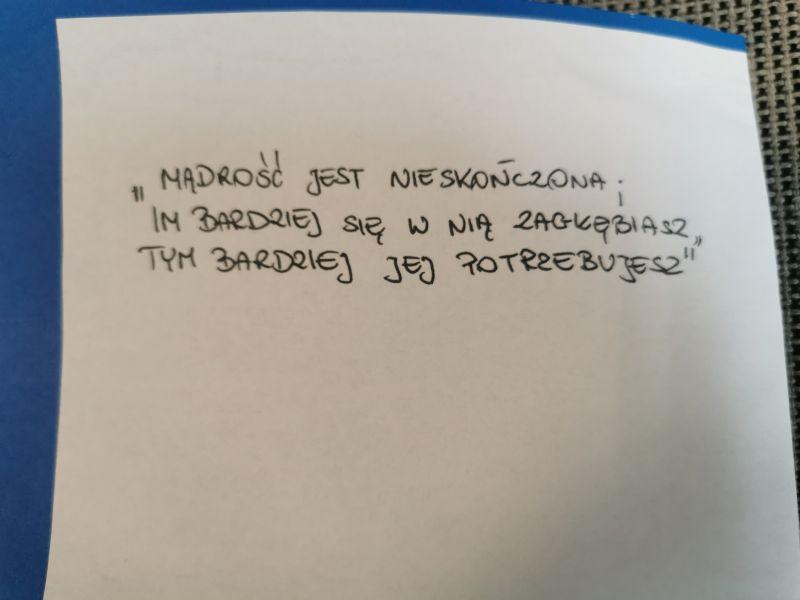 „MĄDROŚĆ JEST NIESKOŃCZONA;
IM BARDZIEJ SIĘ W NIĄ ZAGŁĘBIASZ,
TYM BARDZIEJ JEJ POTRZEBUJESZ"